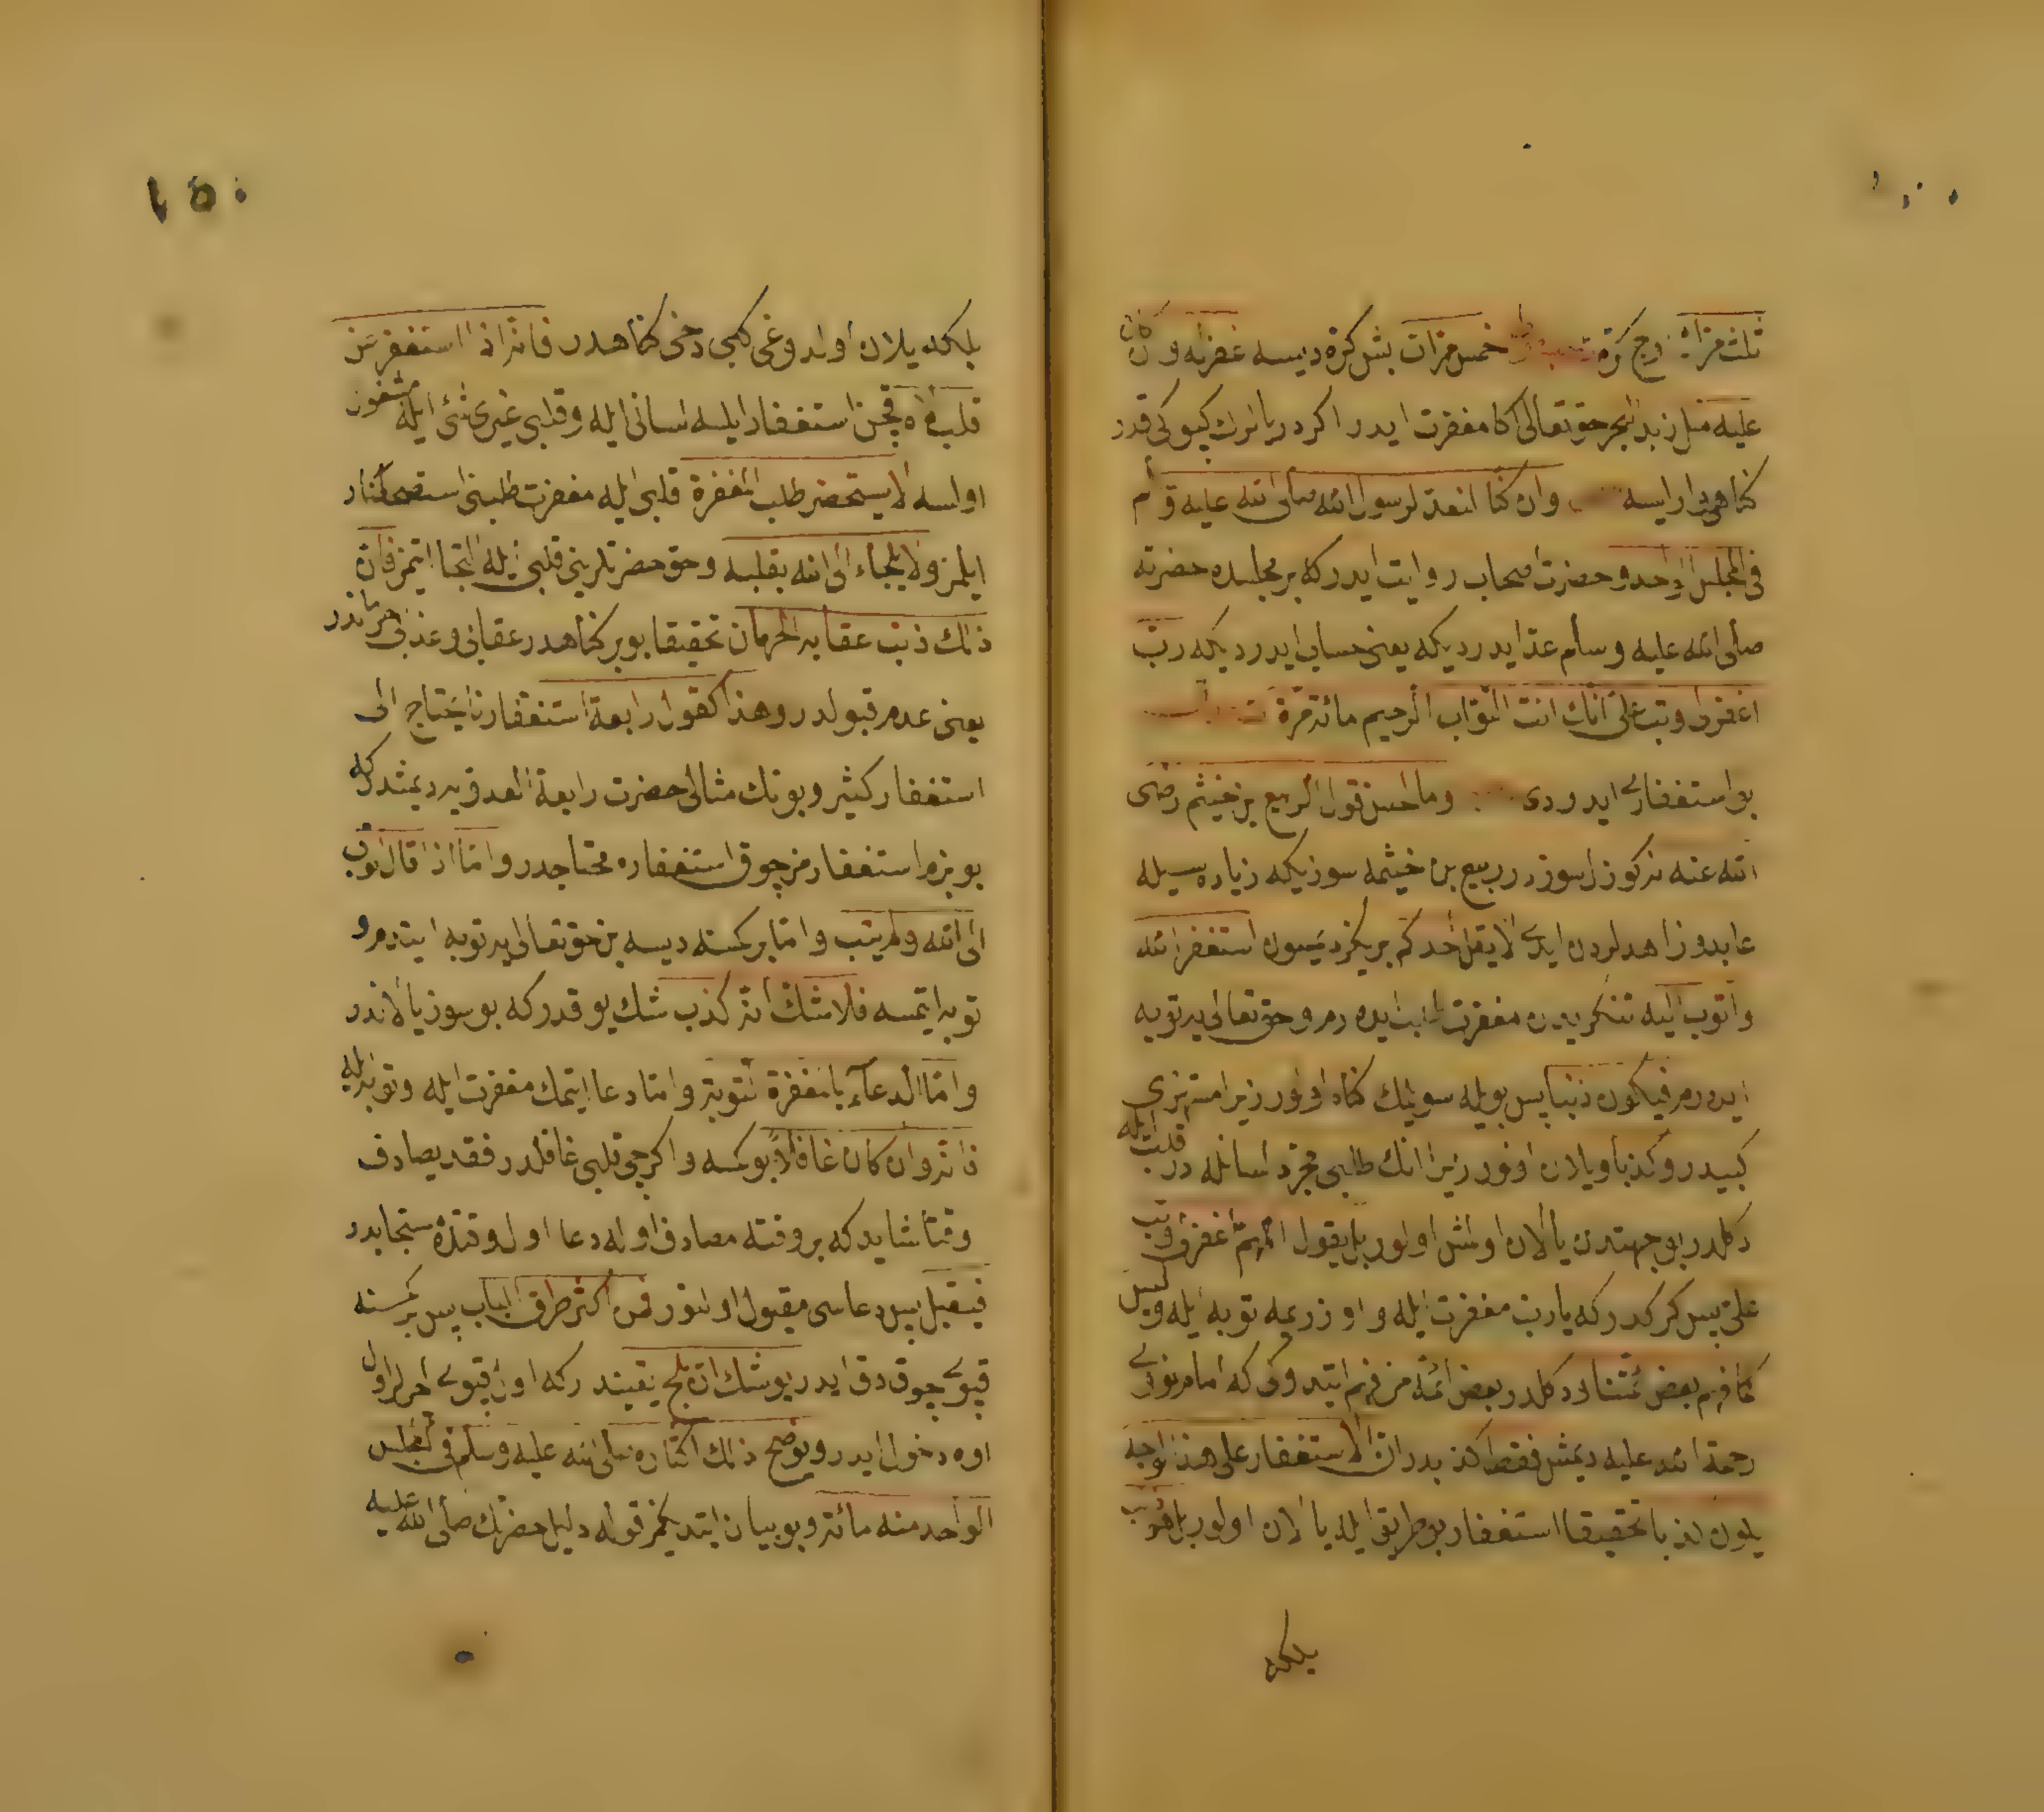 ثلث مرات اوج كره خمس مرات بش كره ديسه غفر له وان كان
عليه مثل زبد البحر حق تعالى اكا مغفرت ايدر اكر دريانك كپوكى قدر
كناهى وار ايسه وان كنا لنعد لرسول الله صلى الله عليه وسلم
فى المجلس الواحد وحضرت اصحاب روايت ايدر كه بر مجلسده حضرته
صلى الله عليه وسلم عد ايدرديكه يعنى حساب ايدرديكه رب
اغفرلى وتب على انك انت التواب الرحيم مائة مرة
بو استغفارى ايدردى وما احسن قول الربيع بن خيثم رضى
الله عنه نه كوزل سوزدر ربيع بن خيثمه سوزيكه زياده سيله
عابد و زاهدلردن ايدى لا يقل احدكم بريكز ديمسون استغفر الله
واتوب اليه تنكريدن مغفرت طلب ايده رم وحق تعالى يه توبه
ايده رم فيكون ذنبا پس بويله سويلمك كناه اولور زيرا مستهزى
كبيدر وكذبا ويلان اولور زيرا انك طلبى مجرد لسانله در قلب ايله
دكلدر بو جهتدن يالان اولمش اولور بل يقول اللهم اغفرلى وتب
على پس كركدر كه يا رب مغفرت ايله و اوزريمه توبه ايله وليس
كما فهم بعض ائمتنا دكلدر بعض ائمه مز فهم ايتدوكى كه امام نووى
رحمة الله عليه ديمش فقط كذبدر ان الاستغفار على هذا الوجه
يكون كذبا تحقيقا استغفار بو طريق ايله يالان اولور بل هو ذنب
بلكه
١٥٠
بلكه يلان اولدوغى كبى دخى كناهدر فانه اذا استغفر عن
قلب لاه قچن استغفار ايلسه لسانى ايله وقلبى غيرى شئ ايله مشغول
اولسه لا يستحضر طلب المغفرة قلبى ايله مغفرت طلبنى استحضار
ايلمز ولا يلجاء الى الله بقلبه وحق حضرتلرينى قلبى ايله التجا ايتمز فان
ذلك ذنب عقابه الحرمان تحقيقا بو بر كناهدر عقابى وعذابى حرماندر
يعنى عدم قبولدر وهذا كقول رابعة استغفارنا يحتاج الى
استغفار كثير وبونك مثالى حضرت رابعة العدويه ديمشدر كه
بو بزم استغفارمز چوق استغفاره محتاجدر واما اذا قال اتوب
الى الله ولم يتب واما بر كمسنه ديسه بن حق تعالى يه توبه ايتدم و
توبه ايتمسه فلا شك انه كذب شك يوقدر كه بو سوز يالاندر
واما الدعاء بالمغفرة والتوبة واما دعا ايتمك مغفرت ايله وتوبه ايله
فانه وان كان غافلا بو كمسه واكرچى قلبى غافلدر فقد يصادف
وقتا شايد كه بر وقته مصادف اوله دعا اول وقتده مستجابدر
فيقبل پس دعاسى مقبول اولنور فمن اكثر طرق الباب پس بر كمسنه
قپويى چوق دق ايدر يوشك ان يلج يقيندر كه اول قپويى اچرلر اول
اوه دخول ايدر ويوضح ذلك اكثاره صلى الله عليه وسلم فى المجلس
الواحد منه مائة وبو بيان ايتديكمز قوله دليل حضرتك صلى الله عليه